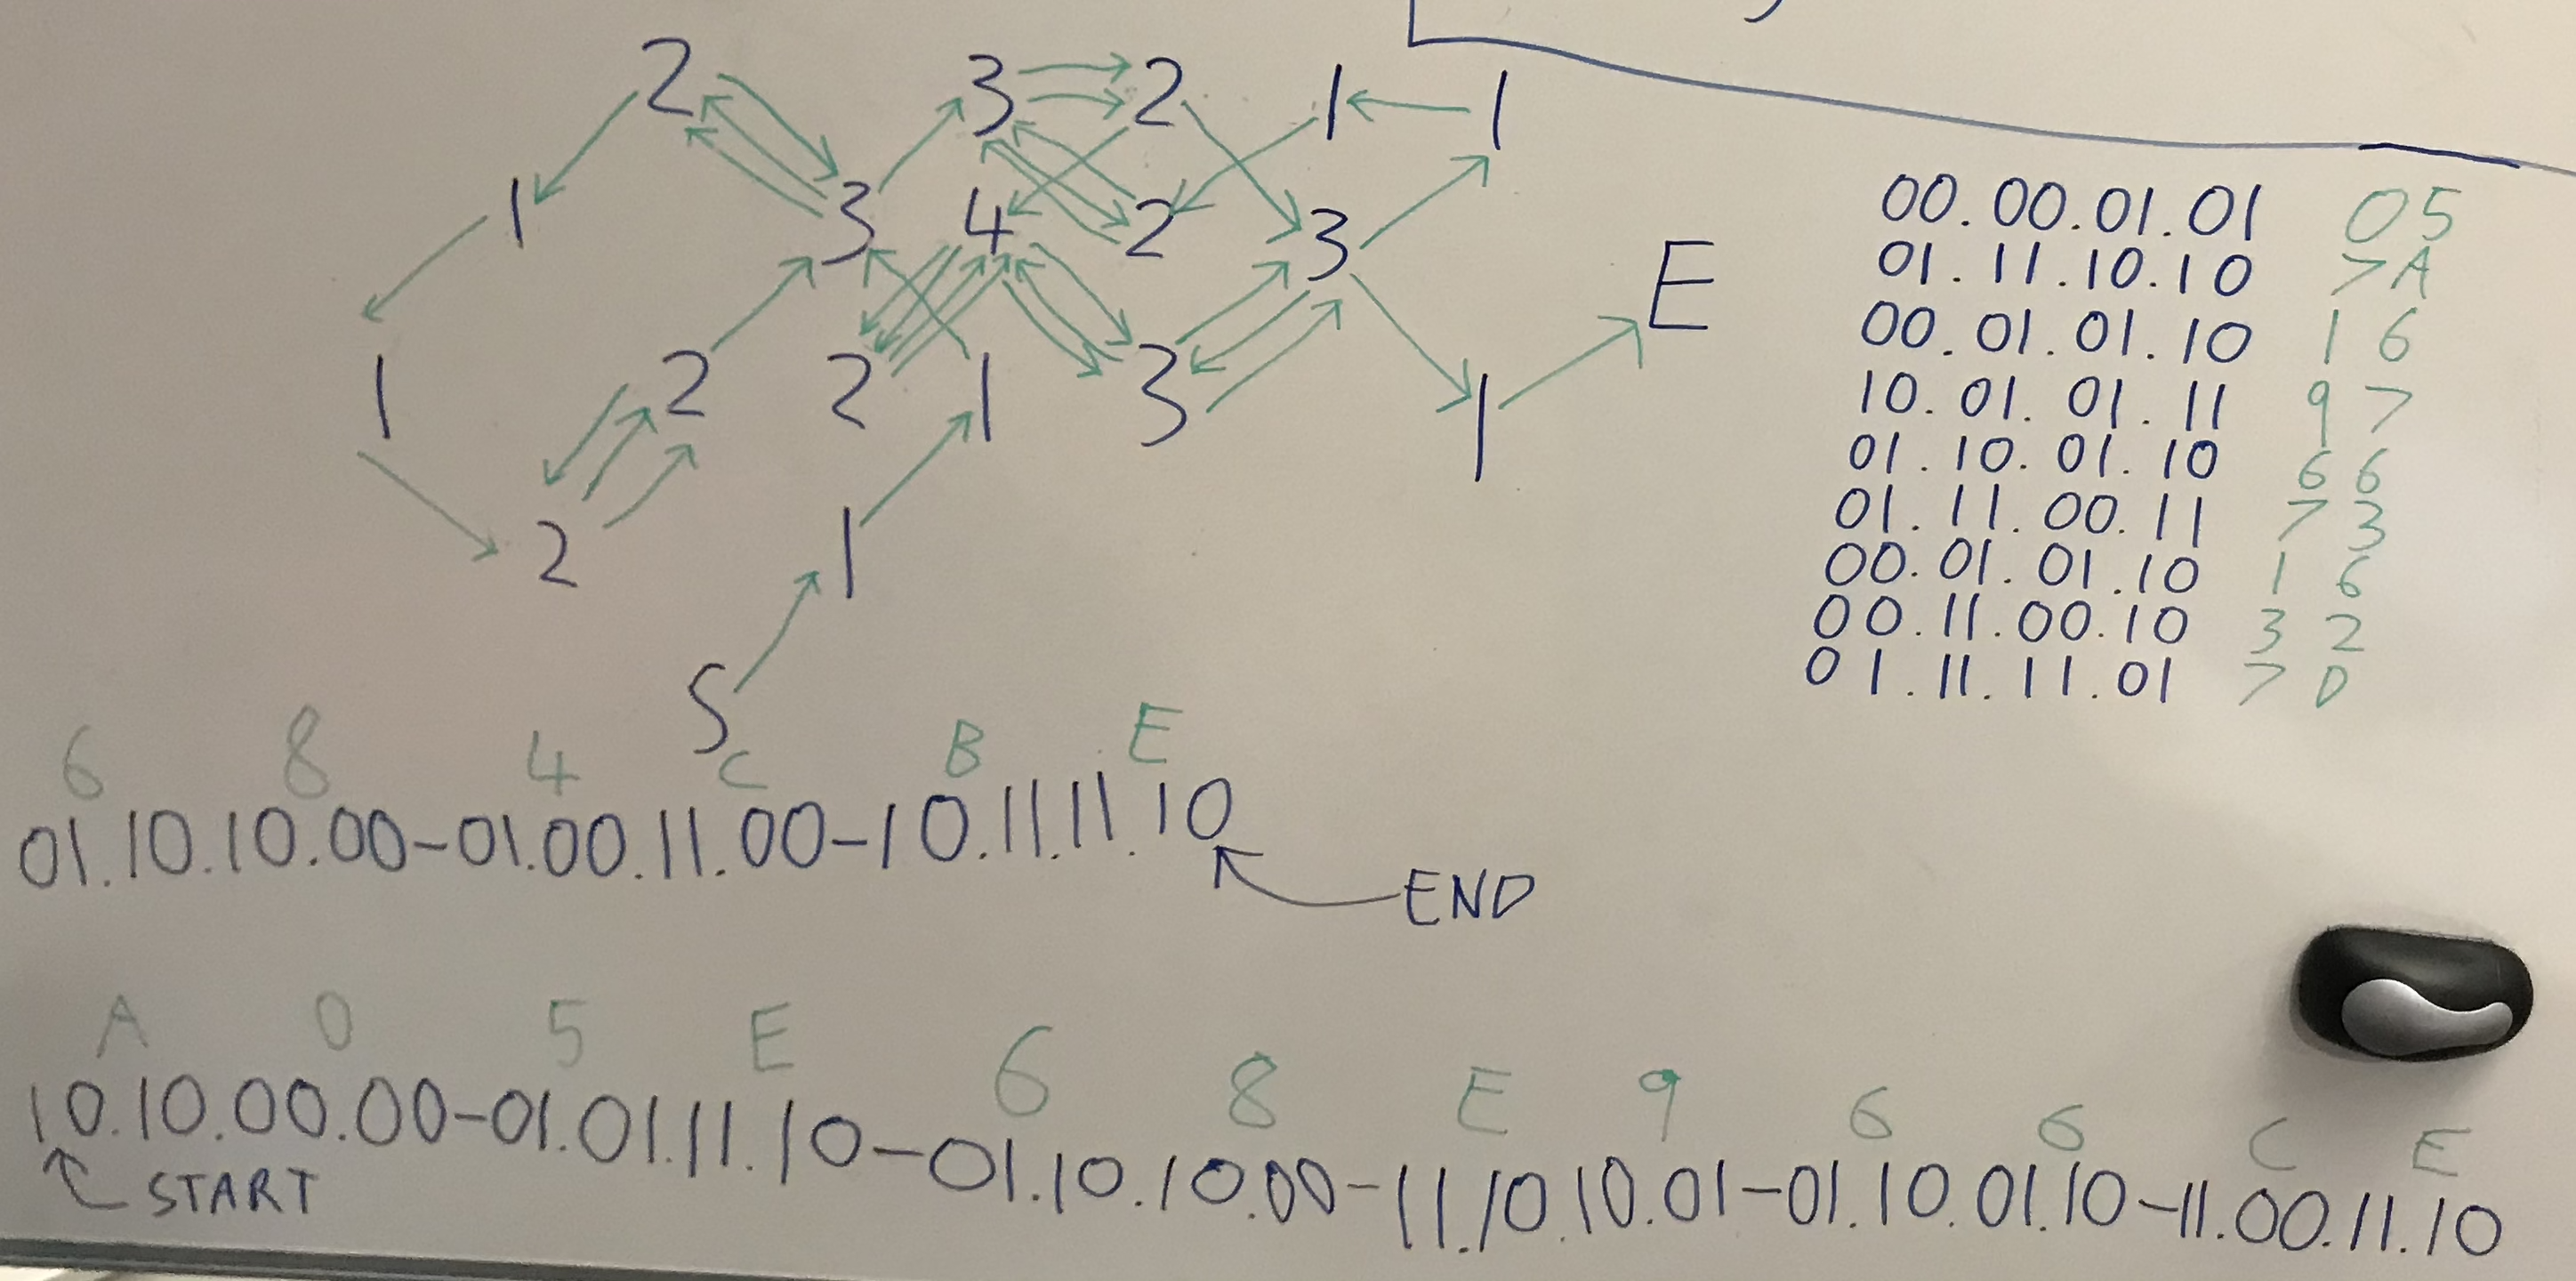 2 3 2 1 1
1 3 4 2 3 E
1 2 2 1 3 1
2 1
S
00.00.01.01 05
01.11.10.10 7A
00.01.01.10 16
10.01.01.11 97
01.10.01.10 66
01.11.00.11 73
00.01.01.10 16
00.11.00.10 32
01.11.11.01 7D
6 8 4 C B E
01.10.10.00-01.00.11.00-10.11.11.10
END
A 0 5 E 6 8 E 9 6 6 C E
10.10.00.00-01.01.11.10-01.10.10.00-11.10.10.01-01.10.01.10-11.00.11.10
START